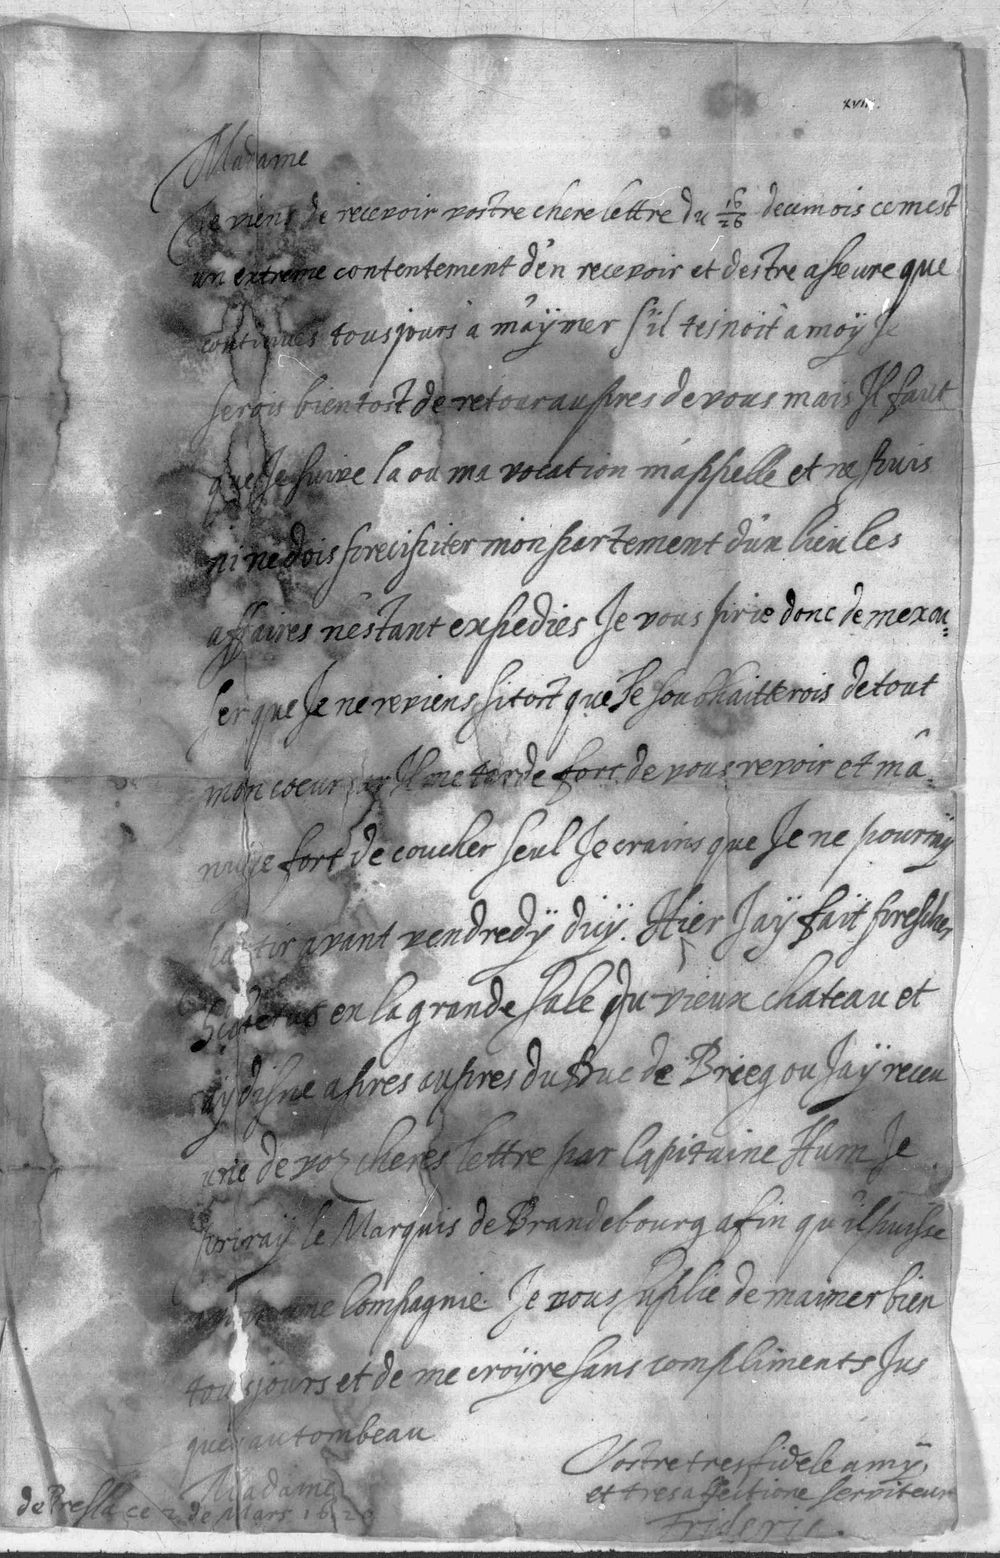 xviii
Madame
Je viens de recevoir vostre chere lettre du 16/26 de ce mois ce mest
un extreme contentement d'en recevoir et destre asseure que
continues tousjours a m'aÿmer s'il tenoit a moÿ Je
serois bientost de retour aupres de vous mais Il faut
que Je suive la ou ma vocation m'appelle et ne puis
ni ne dois precipiter mon partement d'un lieu les
affaires n'estant expedies Je vous prie donc de mexcu=
ser que Je ne reviens si tost que Je souhaitterois de tout
mon coeur car Il me tarde fort de vous revoir et m'a
nuÿe fort de coucher seul Je crains que Je ne pourraÿ
partir avant vendredÿ d'uÿ. Hier J'aÿ fait prescher
en la grande sale du vieux chateau et
aÿ disne apres aupres du Duc de Brieg ou J'aÿ receu
une de voz cheres lettre par Capitaine Hum Je
priraÿ le Marquis de Brandebourg afin qu'il puisse
une Compagnie Je vous suplie de maimer bien
tousjours et de me croÿre sans compliments Jus
ques au tombeau
Madame
Vostre tres fidele amÿ
et tres affectione serviteur
Frideric.
de Presla ce 2 de Mars 1620